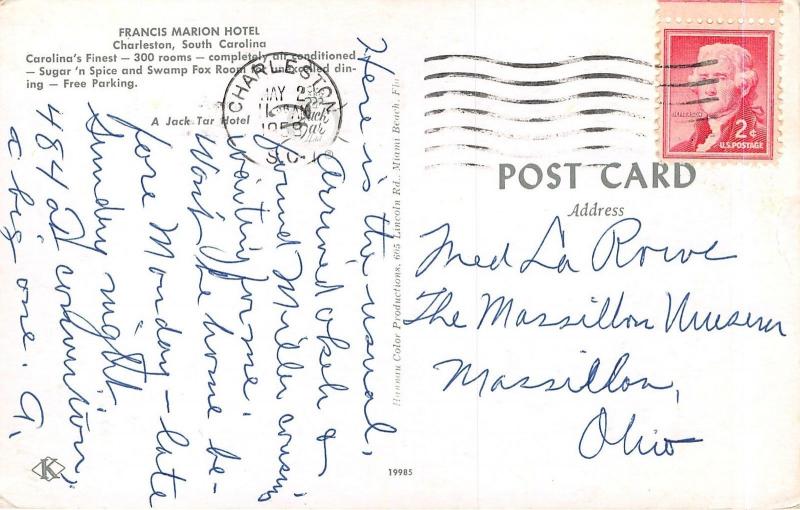 FRANCIS MARION HOTEL
Charleston, South Carolina
Carolina's Finest — 300 rooms — completely air conditioned
— Sugar 'n Spice and Swamp Fox Room for unexcelled din-
ing — Free Parking.
A Jack Tar Hotel
CHARLESTON
MAY 2
S.C.
Here is the usual.
Arrived okeh &
found Miller cousins
waiting for me.
Won't be home be-
fore Monday – late
Sunday night
484 at convention;
a big one. A.
Hannau Color Productions, 605 Lincoln Rd., Miami Beach, Fla.
K
19985
JEFFERSON
2¢
U.S. POSTAGE
POST CARD
Address
Med La Rowe
The Massillon Museum
Massillon,
Ohio